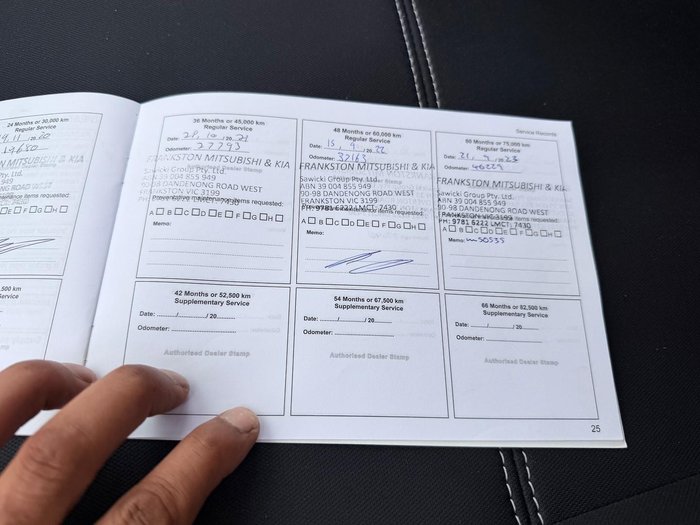 Service Records
24 Months or 30,000 km
Regular Service
14650
MITSUBISHI & KIA
Pty. Ltd.
004 855 949
DANDENONG ROAD WEST
VIC 3199
E F G H
36 Months or 45,000 km
Regular Service
Date: 28, 10 / 20 21
Odometer: 27793
FRANKSTON MITSUBISHI & KIA
Sawicki Group Pty. Ltd.
ABN 39 004 855 949
90-98 DANDENONG ROAD WEST
FRANKSTON VIC 3199
PH: 9781 6222 LMCT: 7430
A B C D E F G H
Memo:
48 Months or 60,000 km
Regular Service
Date: 15, 9 / 20 22
Odometer: 37163
FRANKSTON MITSUBISHI & KIA
Sawicki Group Pty. Ltd.
ABN 39 004 855 949
90-98 DANDENONG ROAD WEST
FRANKSTON VIC 3199
PH: 9781 6222 LMCT: 7430
A B C D E F G H
Memo:
60 Months or 75,000 km
Regular Service
Date: 21, 9 / 20 23
Odometer: 46229
FRANKSTON MITSUBISHI & KIA
Sawicki Group Pty. Ltd.
ABN 39 004 855 949
90-98 DANDENONG ROAD WEST
FRANKSTON VIC 3199
PH: 9781 6222 LMCT: 7430
A B C D E F G H
Memo: m50535
42 Months or 52,500 km
Supplementary Service
Date: ......../......../ 20......
Odometer: ..............................
Authorised Dealer Stamp
54 Months or 67,500 km
Supplementary Service
Date: ......../......../ 20......
Odometer: ..............................
Authorised Dealer Stamp
66 Months or 82,500 km
Supplementary Service
Date: ......../......../ 20......
Odometer: ..............................
Authorised Dealer Stamp
25